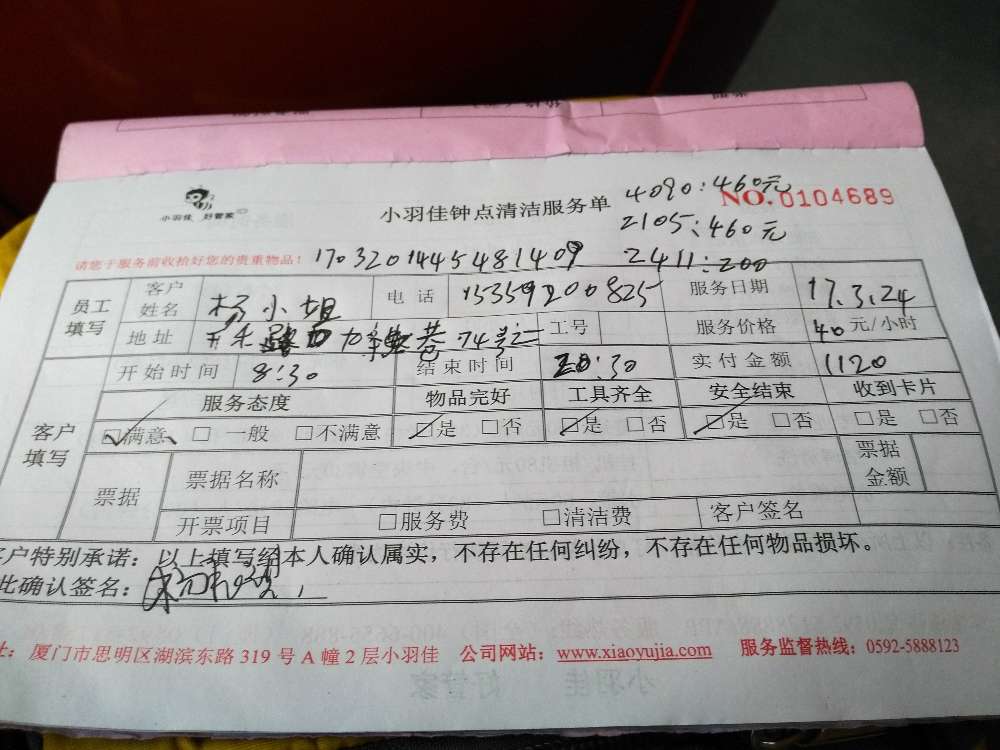 小羽佳 好管家
小羽佳钟点清洁服务单
4090:460元
NO.0104689
2105:460元
请您于服务前收拾好您的贵重物品!
170320144548 1409
2411:200
员工填写
客户姓名 杨小姐 电话 15359200825 服务日期 17.3.24
地址 开禾 巷 74号 工号 服务价格 40元/小时
开始时间 8:30 结束时间 20:30 实付金额 1120
客户填写
服务态度 物品完好 工具齐全 安全结束 收到卡片
☑满意 □一般 □不满意 ☑是 □否 ☑是 □否 ☑是 □否 □是 □否
票据 票据名称 票据金额
开票项目 □服务费 □清洁费 客户签名
客户特别承诺:以上填写经本人确认属实,不存在任何纠纷,不存在任何物品损坏。
此确认签名:
址:厦门市思明区湖滨东路319号A幢2层小羽佳 公司网站:www.xiaoyujia.com 服务监督热线:0592-5888123